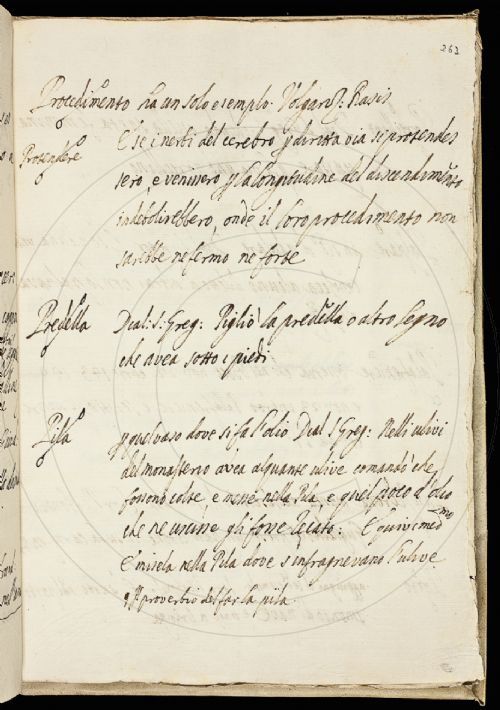 262
Procedimento ha un solo esemplo. Volgariz: Rasis
Protendere
E se i nerbi del cerebro p diritta via se protendes
sero, e venisero p la longitudine del discendimento
indebolirebbero, onde il loro procedimento non
sarebbe ne fermo ne forte
Predella
Dial: S: Greg: Pigliò la predella o altro legno
che avea sotto i piedi.
Pila
p quel vaso dove si fa l'olio Dial S Greg: Nelli ulivi
del monasterio avea alquante ulive comandò che
fossono colte e messe nella Pila, e quel poco d'olio
che ne uscisse gli fosse recato: E quivi medmo
E misela nella Pila dove s'infragnevano l'ulive
p proverbio del far la pila